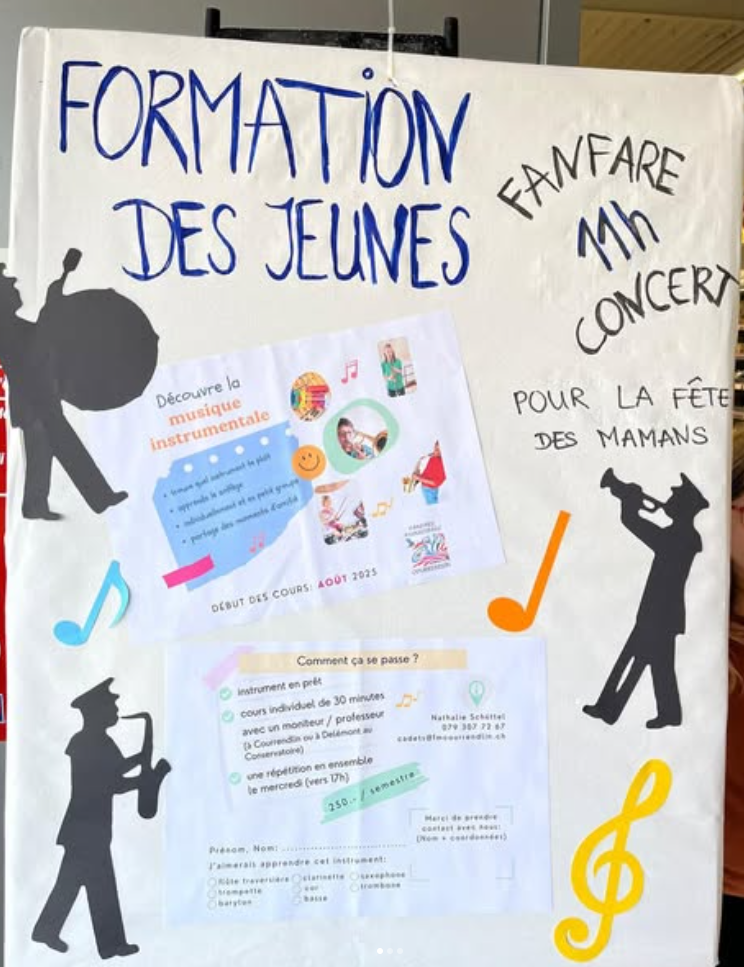 FORMATION
DES JEUNES
FANFARE
11h
CONCERT
POUR LA FÊTE
DES MAMANS
Découvre la
musique
instrumentale
• trouve quel instrument te plaît
• apprends le solfège
• individuellement et en petit groupe
• partage des moments d'amitié
DÉBUT DES COURS: AOÛT 2025
FANFARE
MUNICIPALE
COURRENDLIN
Comment ça se passe ?
instrument en prêt
cours individuel de 30 minutes
avec un moniteur / professeur
(à Courrendlin ou à Delémont au
Conservatoire)
une répétition en ensemble
le mercredi (vers 17h)
250.- / semestre
Nathalie Schöttel
079 307 72 67
cadets@fmcourrendlin.ch
Merci de prendre
contact avec nous:
(Nom + coordonnées)
Prénom, Nom: ..............................
J'aimerais apprendre cet instrument:
flûte traversière clarinette saxophone
trompette cor trombone
baryton basse